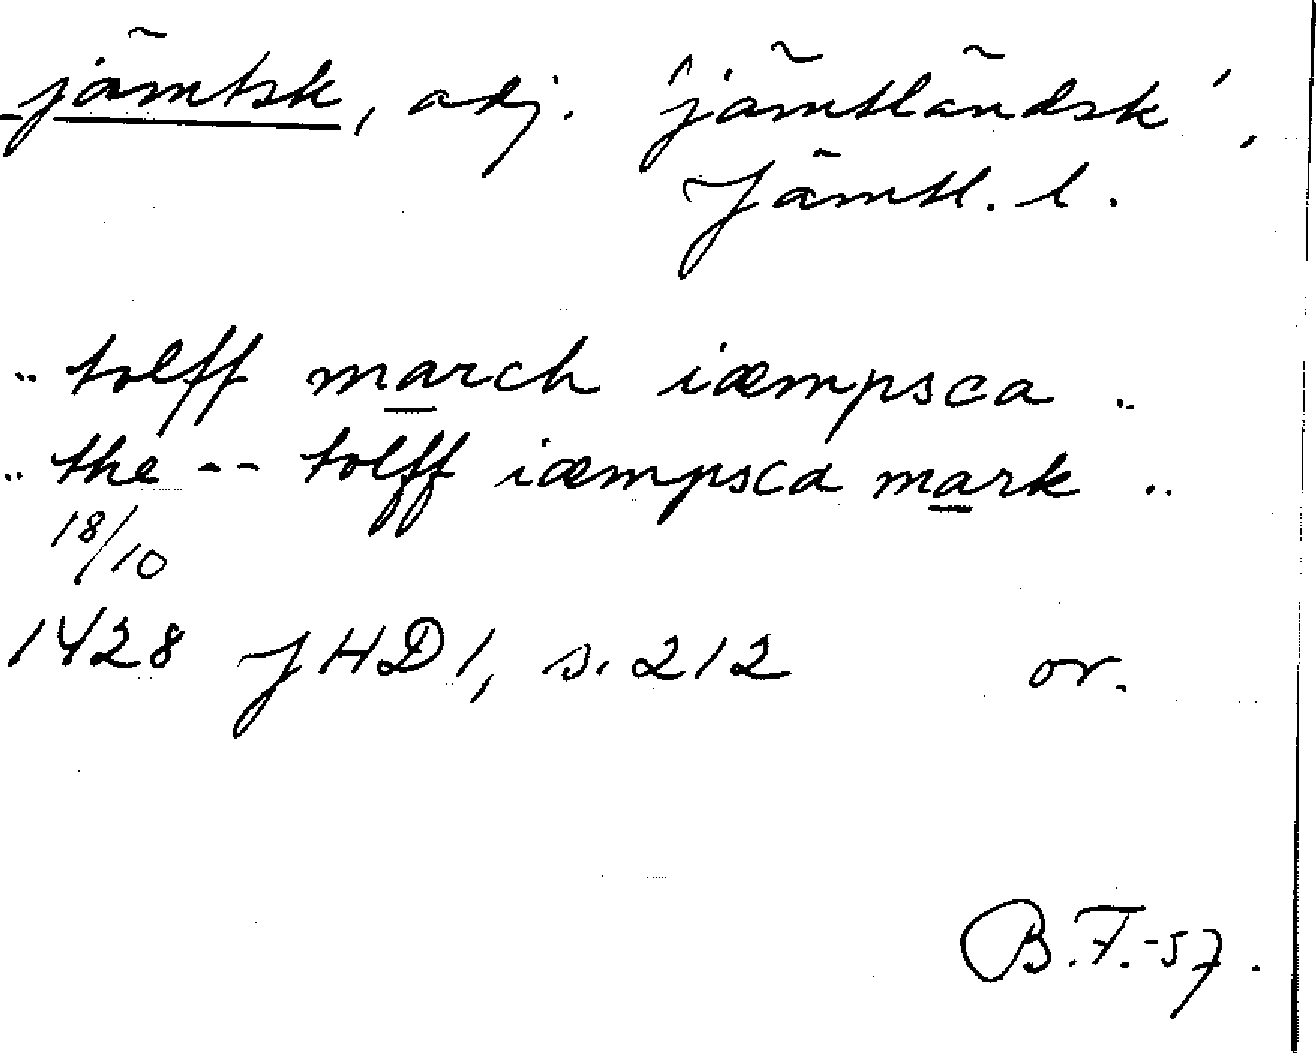 jämtsk, adj. 'jämtländsk',
Jämtl. l.
.. tolff march iæmpsca ..
.. the -- tolff iæmpsca mark ..
18/10
1428 JHD 1, s. 212 or.
B.F.-57.